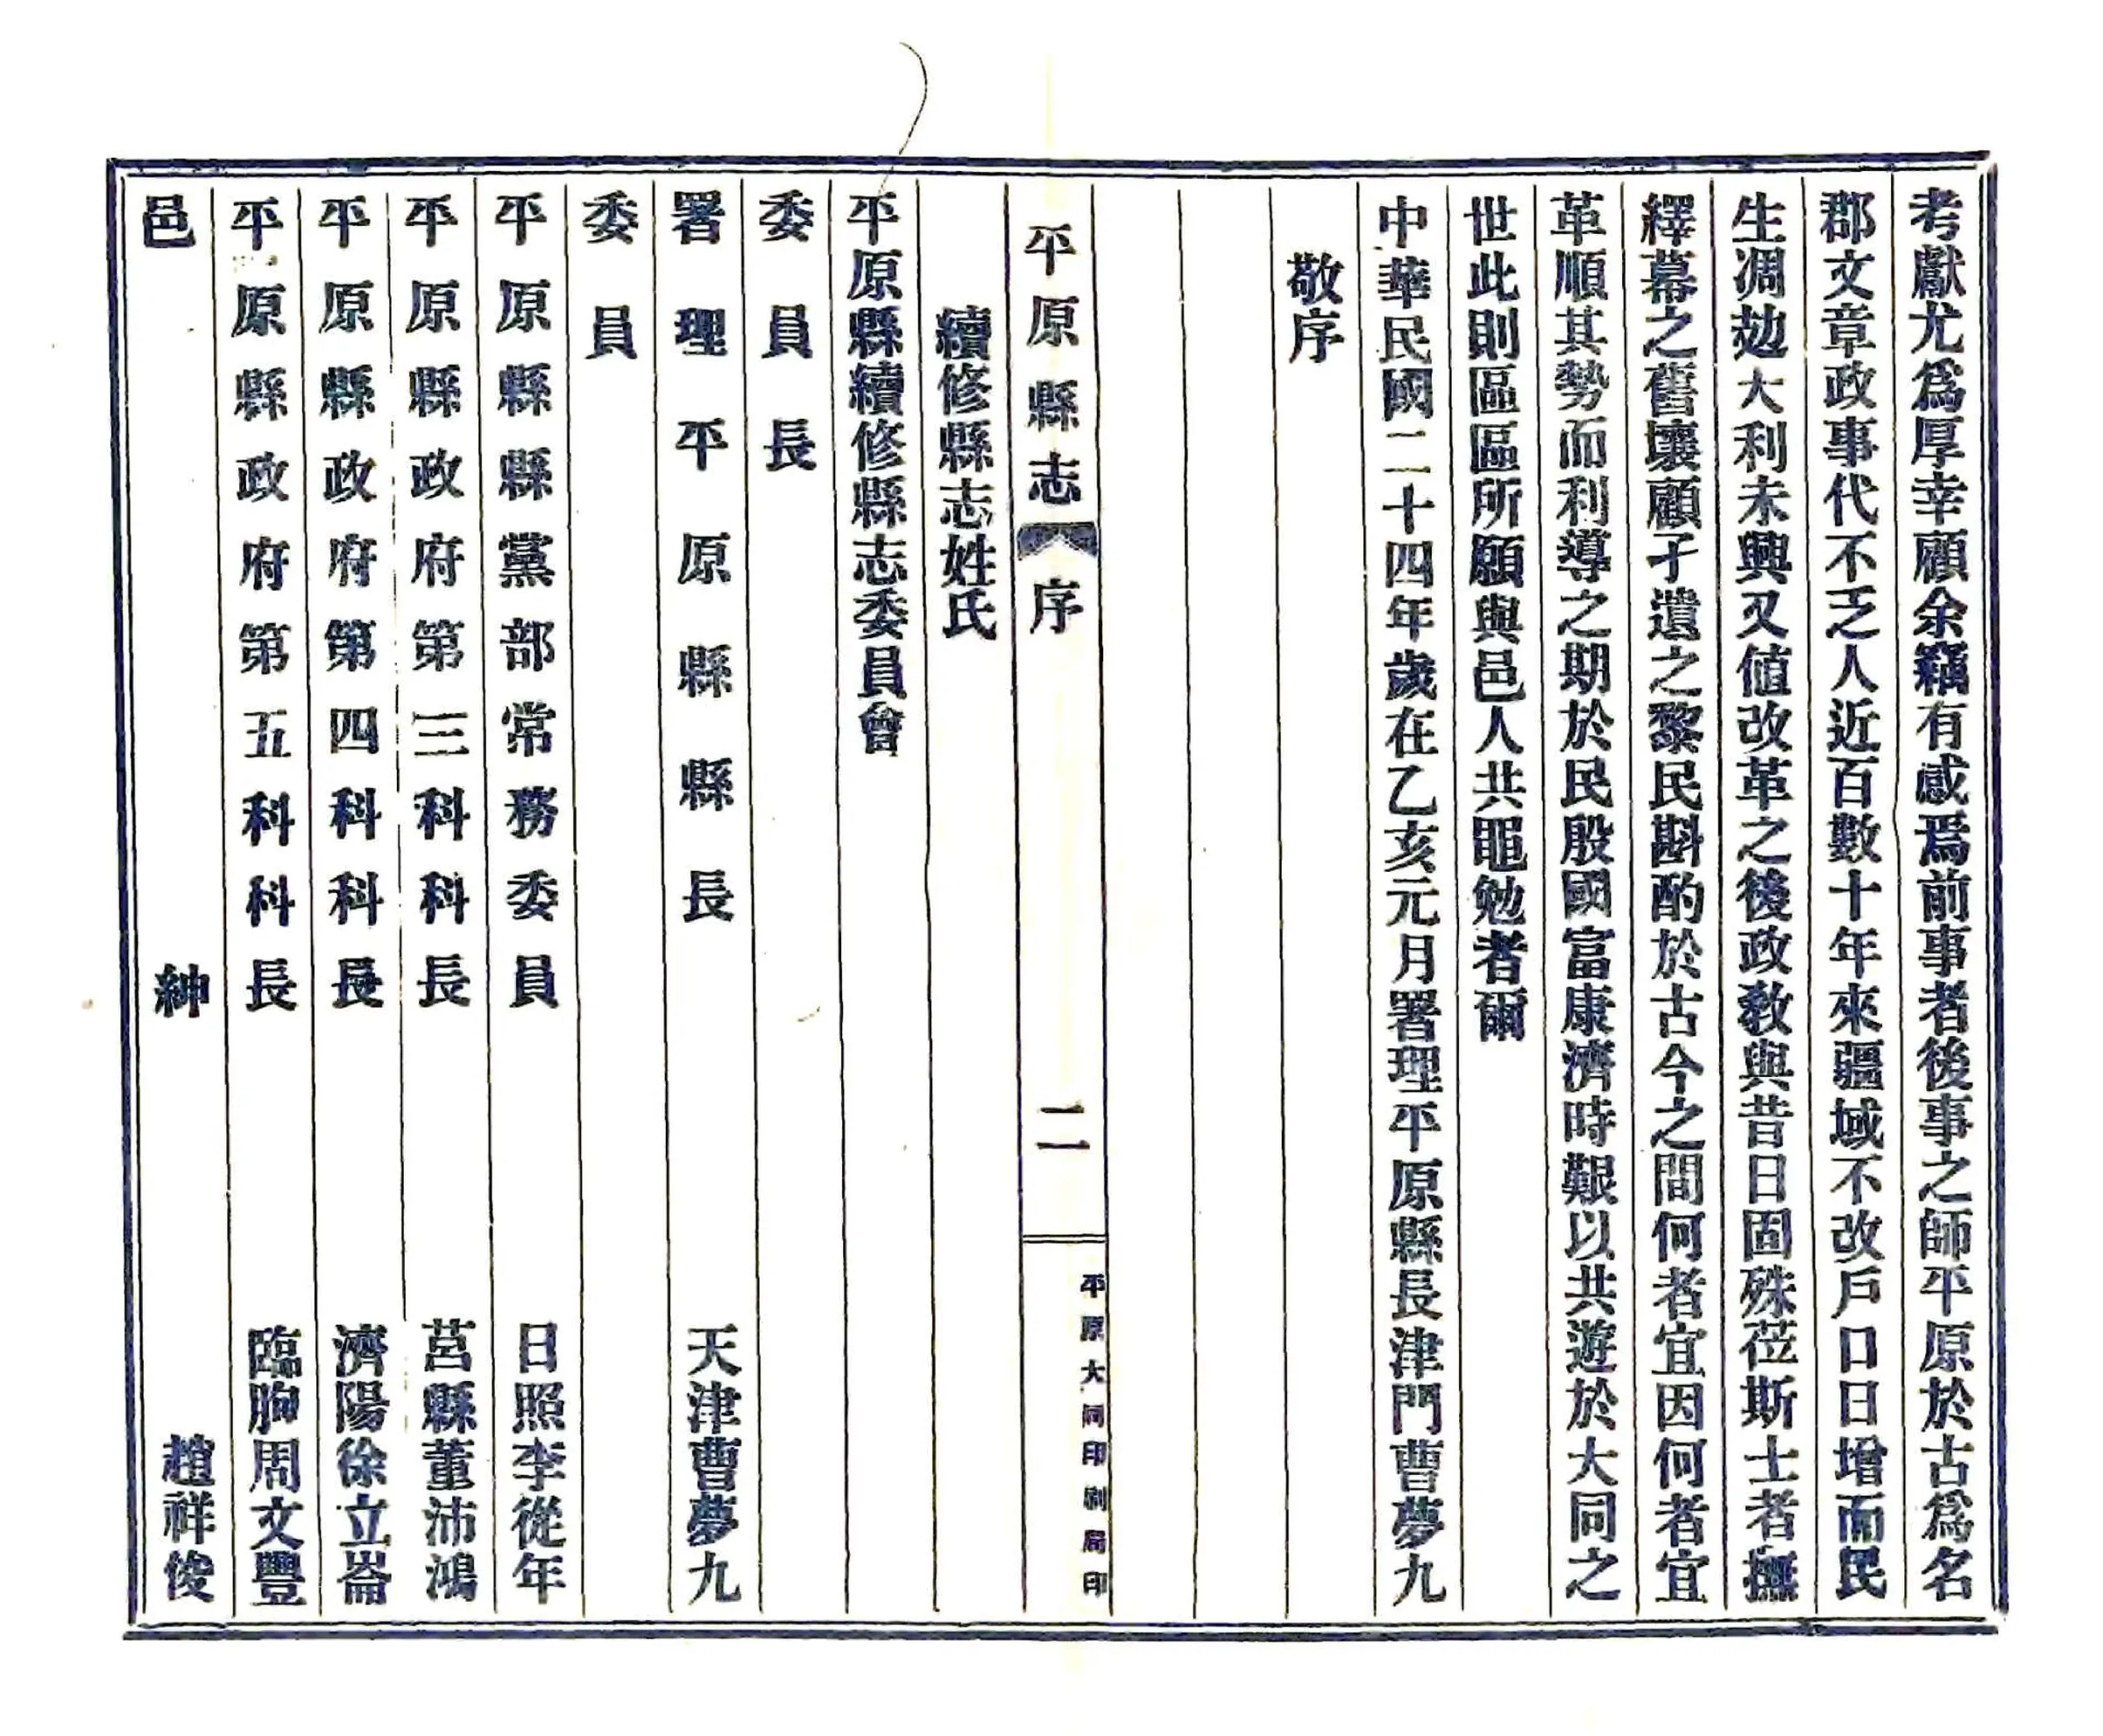 考獻尤爲厚幸顧余竊有感焉前事者後事之師平原於古爲名
郡文章政事代不乏人近百數十年來疆域不改戶口日增而民
生凋攰大利未興又值改革之後政敎與昔日固殊莅斯士者撫
繹幕之舊壤顧孑遺之黎民斟酌於古今之間何者宜因何者宜
革順其勢而利導之期於民殷國富康濟時艱以共遊於大同之
世此則區區所願與邑人共黽勉者爾
中華民國二十四年歲在乙亥元月署理平原縣長津門曹夢九
敬序
平原縣志 序 二 平原大同印刷局印
續修縣志姓氏
平原縣續修縣志委員會
委員長
署理平原縣縣長 天津曹夢九
委員
平原縣縣黨部常務委員 日照李從年
平原縣政府第三科科長 莒縣董沛鴻
平原縣政府第四科科長 濟陽徐立崙
平原縣政府第五科科長 臨朐周文豐
邑紳 趙祥俊